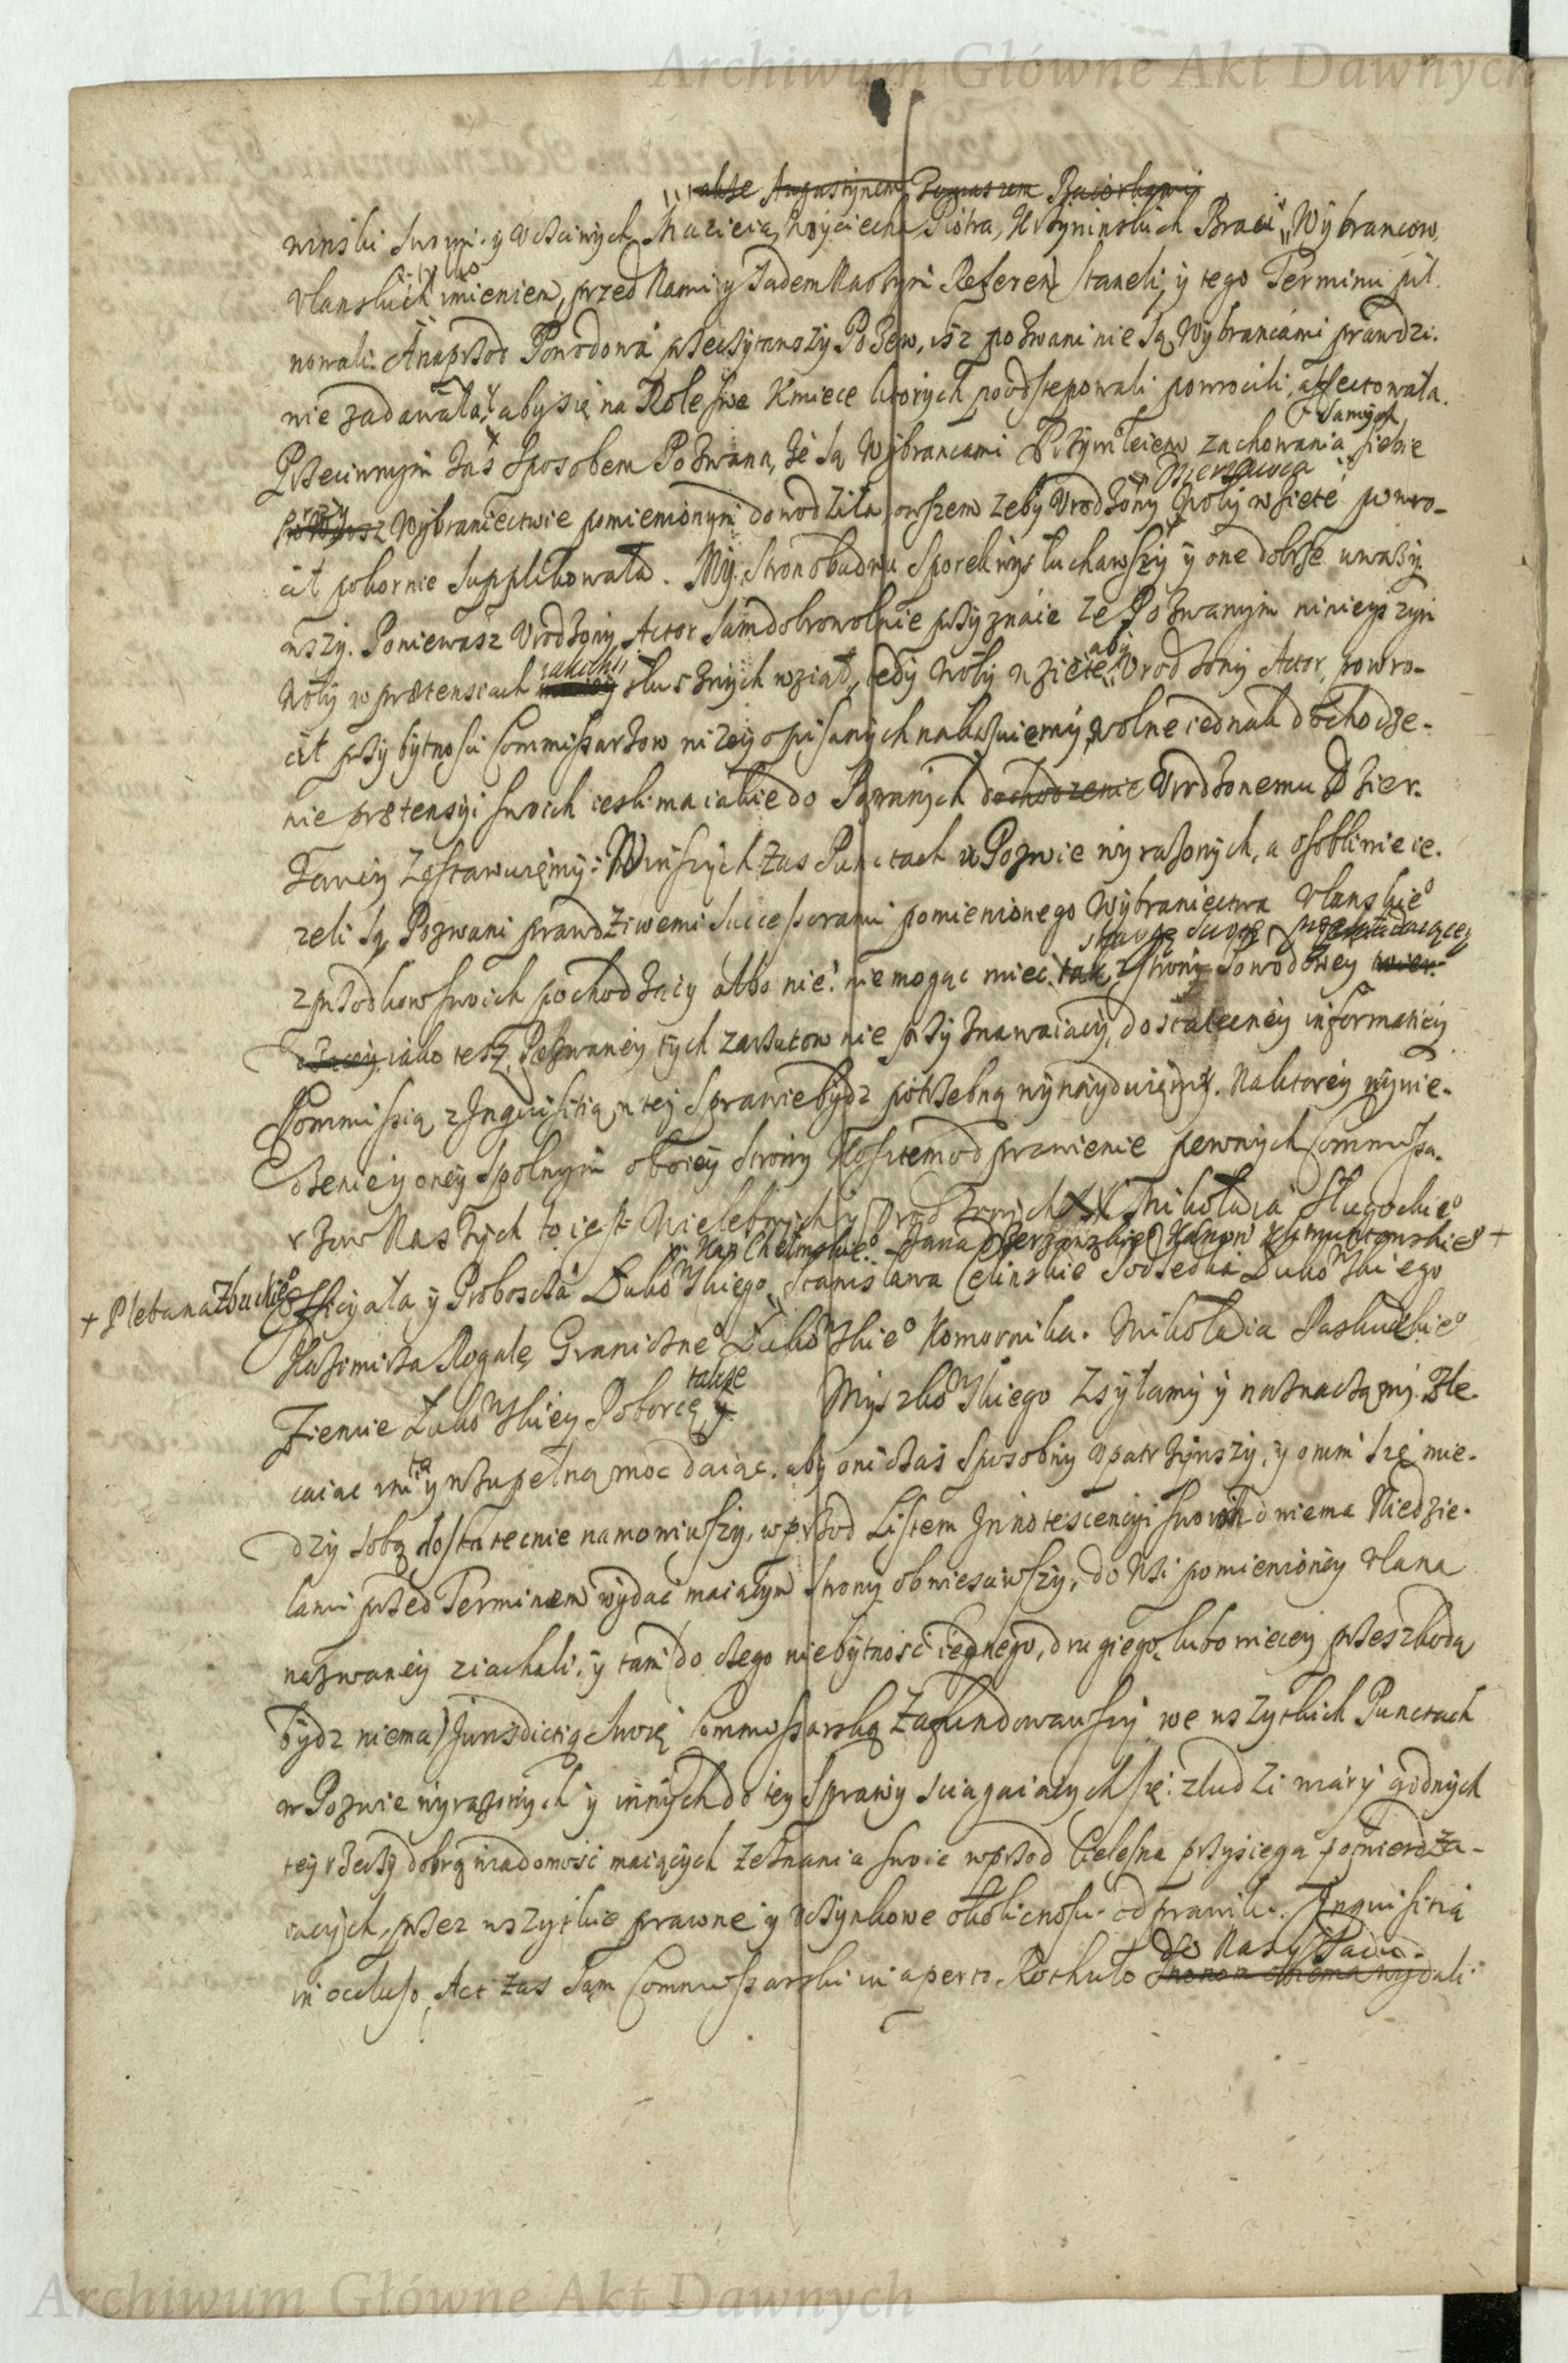 Archiwum Główne Akt Dawnych
także Augustynem, Tomaszem
winski Suoyn. y Vcściwych Macieia, Woyciecha Piotra, Braci Wybrancow
Vlanskich imieniem, przed Nami y Sądem Naszym Referen. staneli, y tego Terminu pil.
nowali. A naprzod Powodowa przeczytawszy Pozew, isz pozwani nie są Wybrancami prawdzi.
wie zadawała, y aby się na Role swe Kmiece ktorych poodstępowali powrocili, affectowała.
Samych
Przeciwnym zaś sposobem Pozwana, że są Wybrancami Przywileiem zachowania siebie
przy Dzierzawca
Wybraniectwie pomienionym dowodziła owszem zeby Vrodzony Woły wzięte powro-
cił pokornie supplikowała. My Stron obudwu sporek wysłuchawszy y one dobrze uważy.
wszy. Poniewasz Vrodzony Actor sam dobrowolnie przyznaie ze Pozwanym ninieyszym
iakichsi aby
Woły w prætensiach słusznych wziął, tedy Woły wzięte Vrodzony Actor, powro-
cił przy bytnosci Commissarzow niżey opisanych nakazuiemy, wolne iednak dochodze-
nie prætensyi swoich iesli ma iakie do Pozwanych dochodzenie Vrodzonemu Dzier.
żawcy Zostawuięmy: W inszych zas Punctach w Pozwie wyrażonych, a osobliwie ie.
zeli są Pozwani prawdziwemi Successorami pomienionego Wybraniectwa Vlanskie°
sprawę swoię przekładaiącey
z przodkow swoich pochodzący albo nie: nie mogąc mieć tak z strony Powodowey
iako tesz Pozwaney tych zarzutow nie przyznawaiący, dostateczney informatiey
Commissią z Inquisitią w tey sprawie bydz potrzebną wynayduięmy. Na ktorey wywie-
dzenie y oney spolnym oboiey strony kosztem odprawienie pewnych Commissa.
rzow Naszych to iest Wielebnych y Vrodzonych XX Mikołaia Długockie°
Kan. Chełmskie° Jana Kanon.
+ Plebana
Officyała y Proboszcza Łukowskiego, Stanisława Celinskie° Podsędka Łukowskiego
Kazimierza Rogalę Graniczne° Łukowskie° Komornika. Mikołaia
także
Ziemie Łukowskiey Poborcę, y Myszkowskiego Zsyłamy y naznaczamy. Zle-
caiąc im y wzupełną moc daiąc. aby oni czas sposobny vpatrzywszy, y onim się mie-
dzy sobą dostatecznie namowiwszy, wprzod Listem Innotescencyi swoich dwiema Niedzie-
lami przed Terminem wydać maiącym strony obwiesciwszy, do Wsi pomienioney Vlana
nazwaney ziachali, y tam (do czego niebytność iednego, drugiego, lubo wiecey przeszkodą
bydz niema) Jurisdictią Swoię Commissarską zafundowawszy we wszytkich Punctach
w Pozwie wyrażonych y innych do tey sprawy sciągaiących się: z ludzi wiary godnych
tey rzeczy dobrą wiadomość maiących zeznania swoie wprzod Cielesną przysięgą potwierdza-
iących, przez wszytkie prawne y vczynkowe okolicznosci odprawili. Inquisitią
do Nas
in ocluso, Act zas sam Commissarski in aperto Rothulo Stronom obiema wydali
Archiwum Główne Akt Dawnych